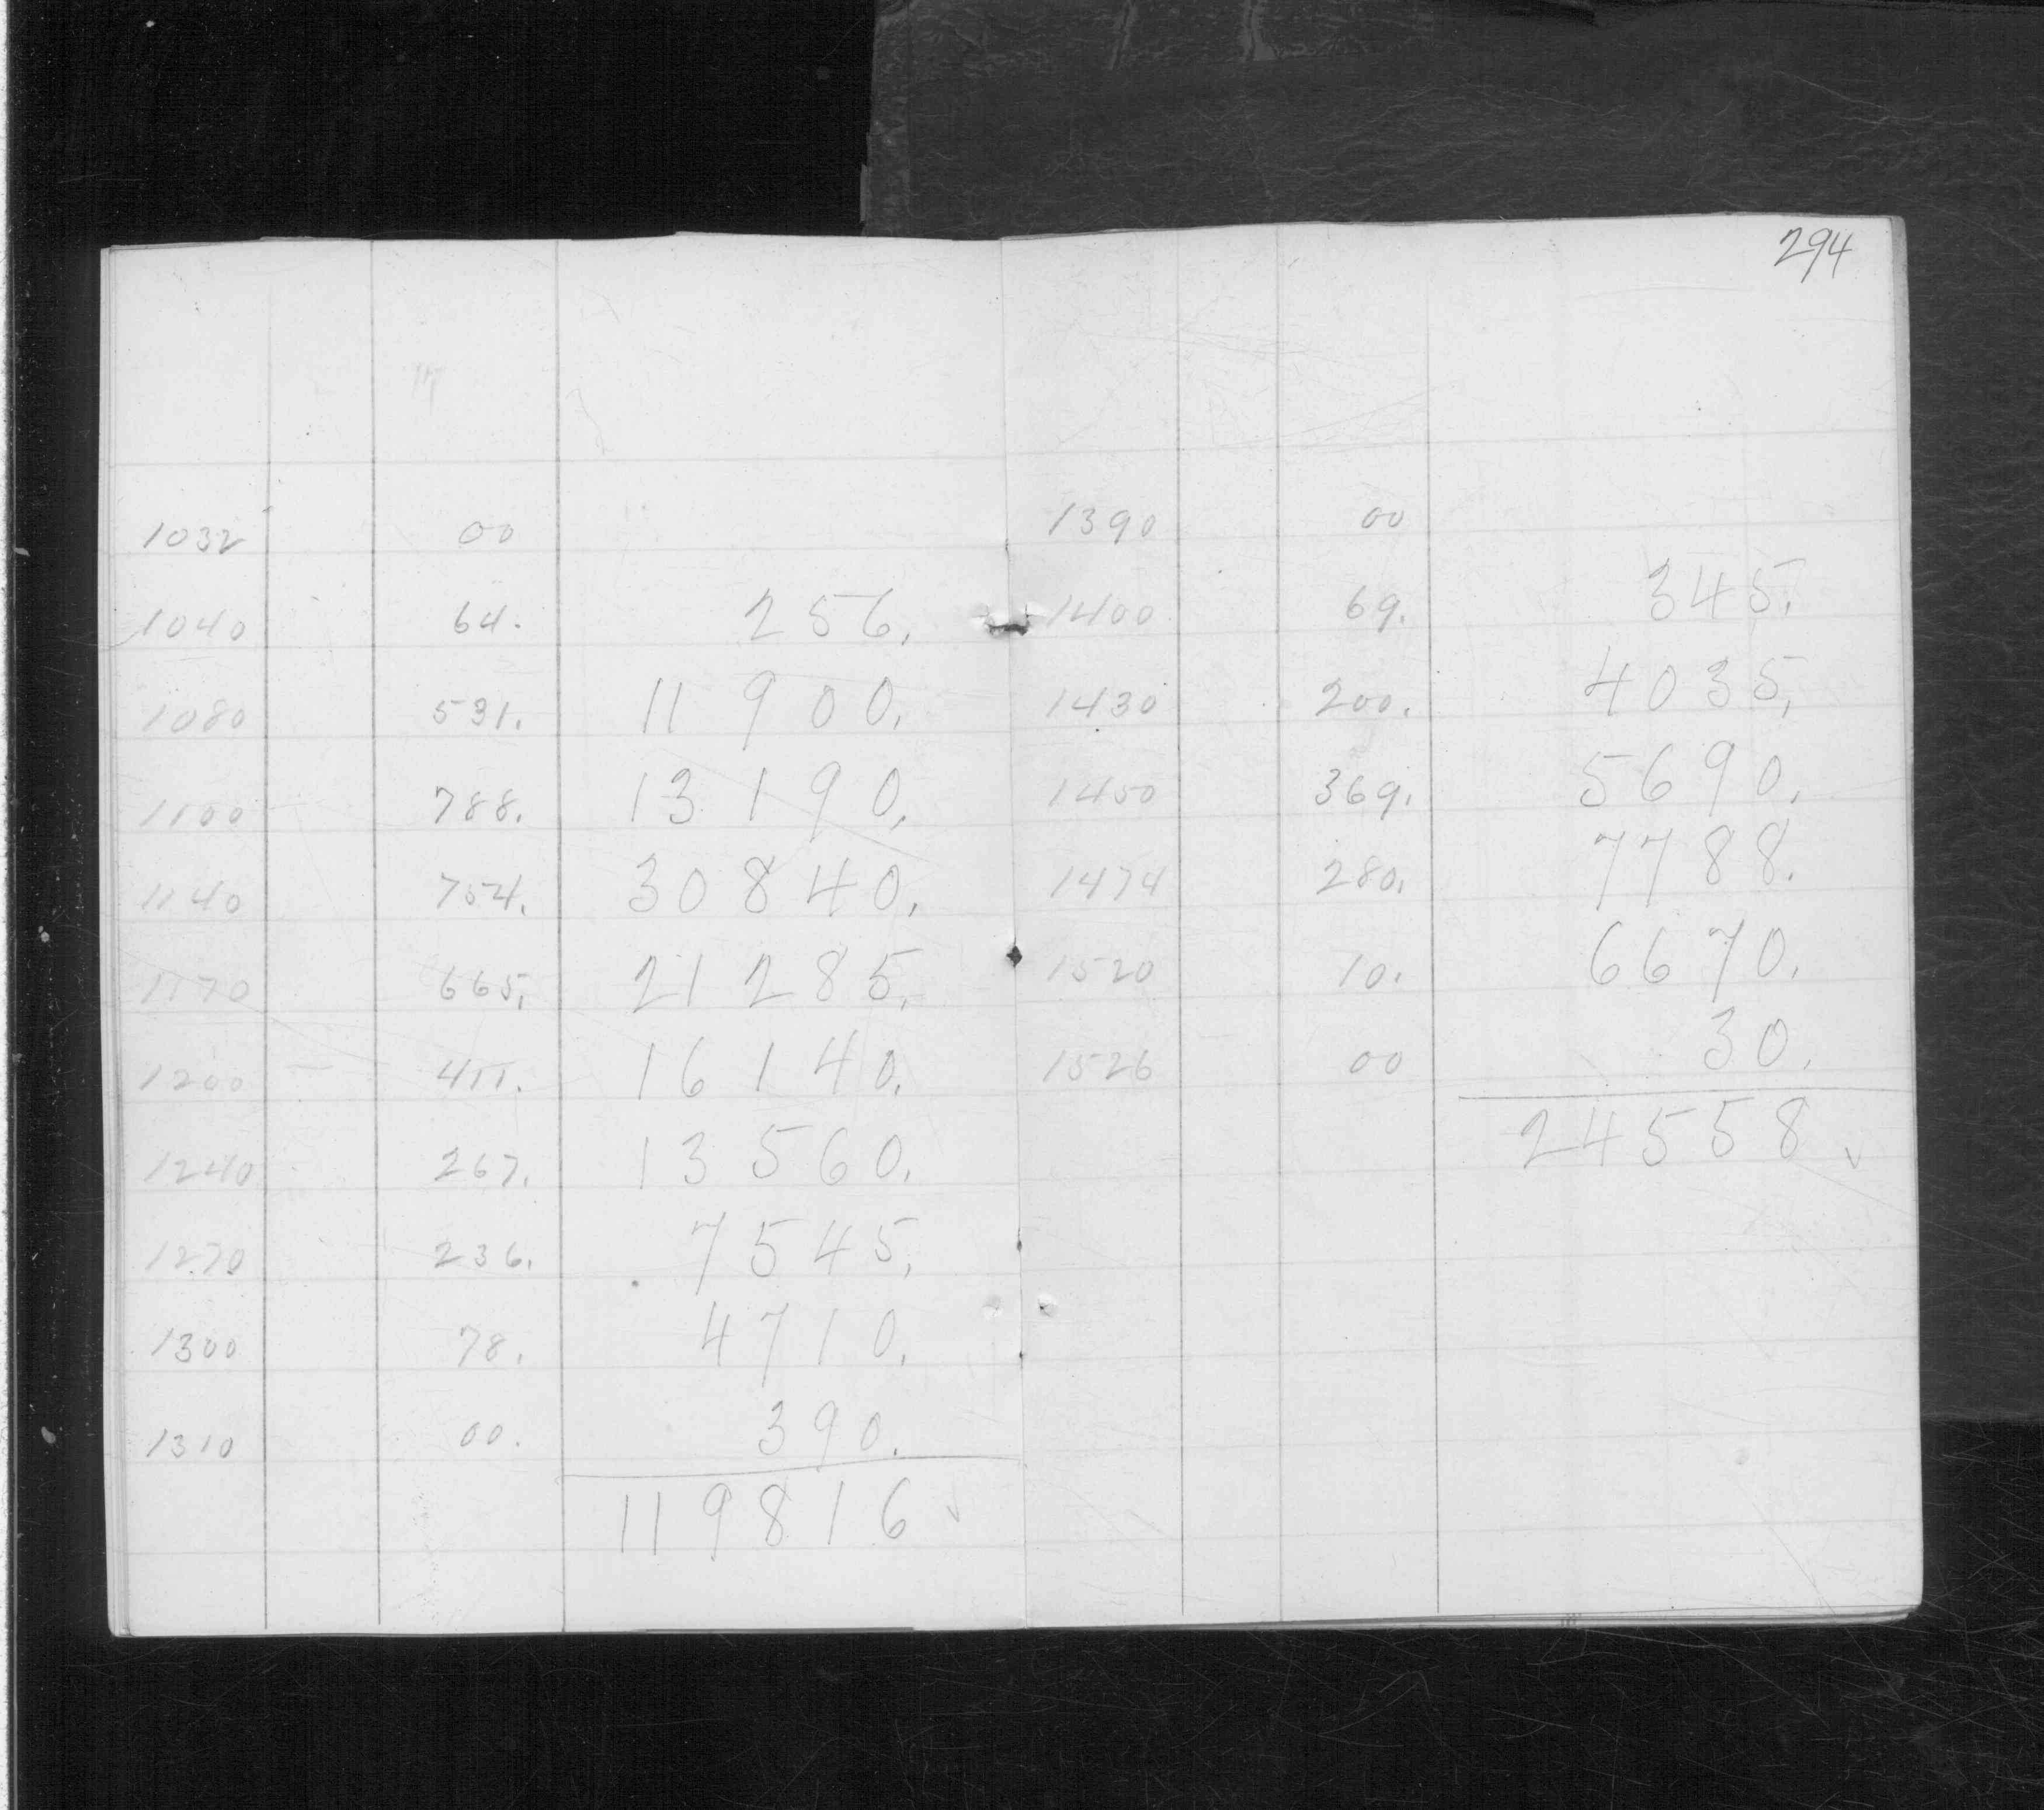 294
1032 00
1040 64. 256.
1080 531. 11900.
1100 788. 13190.
1140 754. 30840.
1170 665. 21285.
1200 411. 16140.
1240 267. 13560.
1270 236. 7545.
1300 78. 4710.
1310 00. 390.
119816 ✓
1390 00
1400 69. 345.
1430 200. 4035.
1450 369. 5690.
1474 280. 7788.
1520 10. 6670.
1526 00 30.
24558 ✓